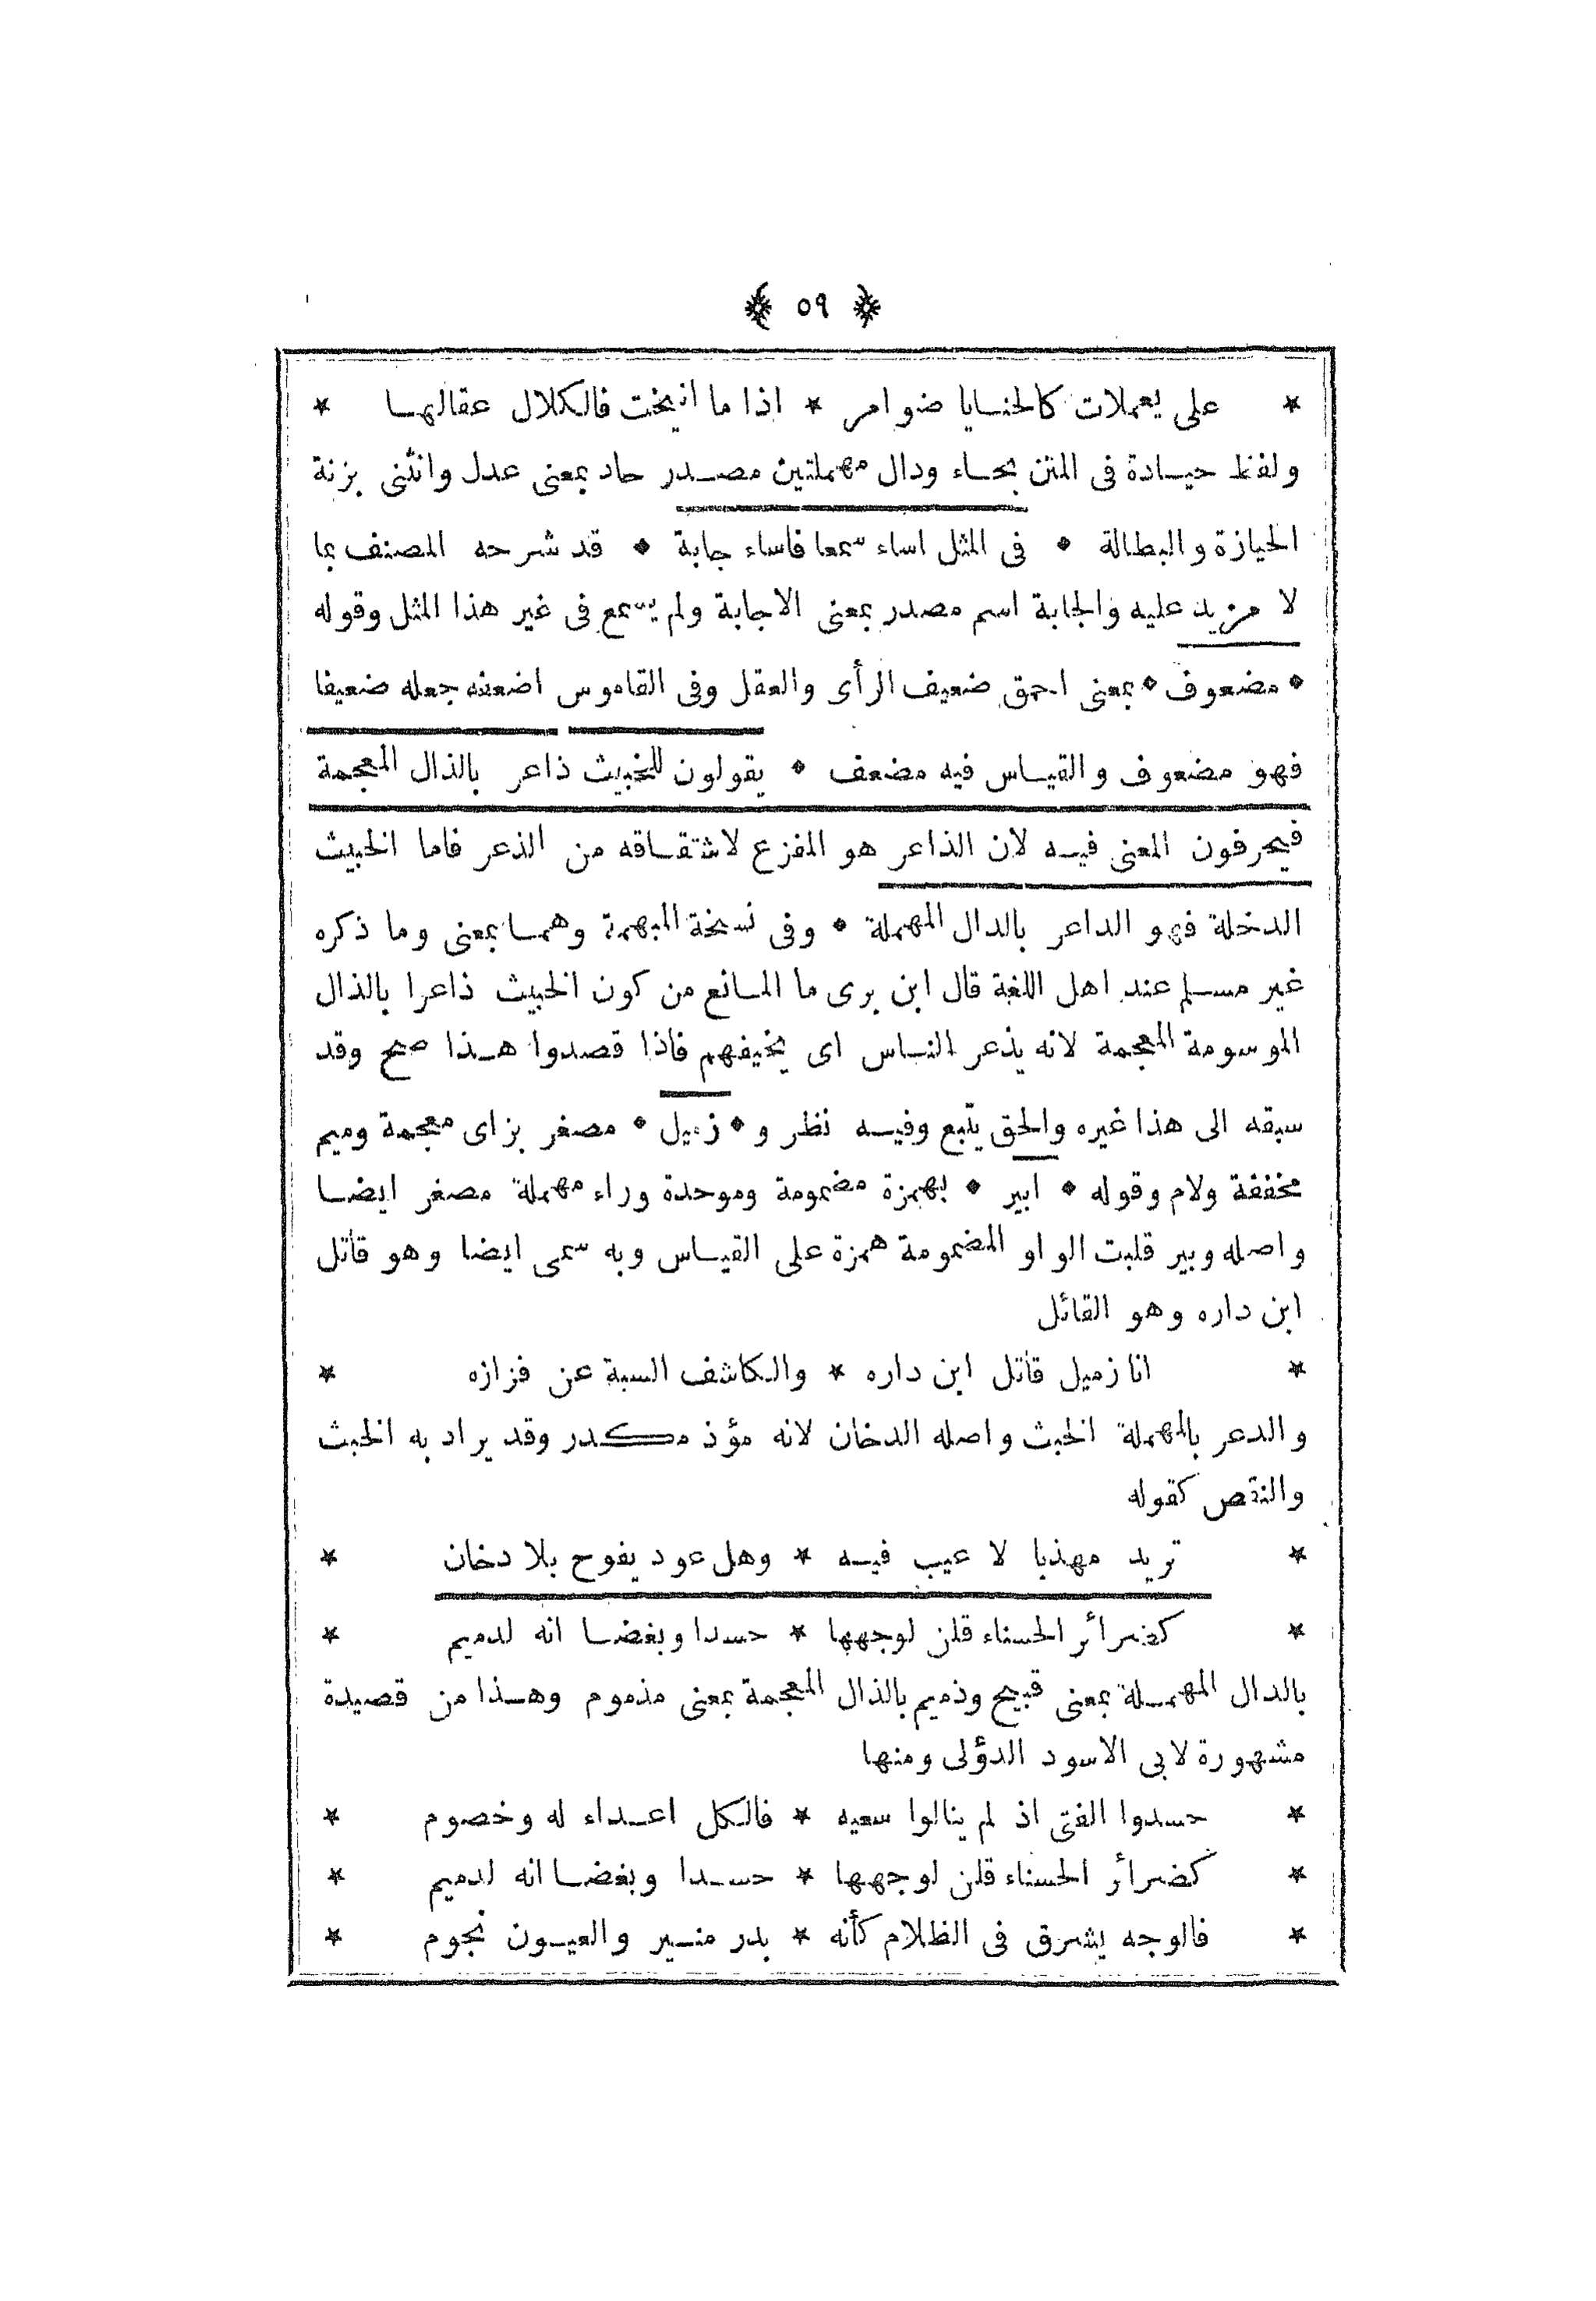 ﴿ ٥٩ ﴾
* على يعملات كالحنايا ضوامر * اذا ما انيخت فالكلال عقالها *
ولفظ حيادة فى المتن بحاء ودال مهملتين مصدر حاد بمعنى عدل وانثنى بزنة
الحيازة والبطالة * فى المثل اساء سمعا فاساء جابة * قد شرحه المصنف بما
لا مزيد عليه والجابة اسم مصدر بمعنى الاجابة ولم يسمع فى غير هذا المثل وقوله
* مضعوف * بمعنى احمق ضعيف الرأى والعقل وفى القاموس اضعفه جعله ضعيفا
فهو مضعوف والقياس فيه مضعف * يقولون للخبيث ذاعر بالذال المعجمة
فيحرفون المعنى فيه لان الذاعر هو المفزع لاشتقاقه من الذعر فاما الخبيث
الدخلة فهو الداعر بالدال المهملة * وفى نسخة المبهمة وهما بمعنى وما ذكره
غير مسلم عند اهل اللغة قال ابن برى ما المانع من كون الخبيث ذاعرا بالذال
الموسومة المعجمة لانه يذعر الناس اى يخيفهم فاذا قصدوا هذا صح وقد
سبقه الى هذا غيره والحق يتبع وفيه نظر و * زميل * مصغر بزاى معجمة وميم
مخففة ولام وقوله * ابير * بهمزة مضمومة وموحدة وراء مهملة مصغر ايضا
واصله وبير قلبت الواو المضمومة همزة على القياس وبه سمى ايضا وهو قاتل
ابن داره وهو القائل
* انا زميل قاتل ابن داره * والكاشف السبة عن فزازه *
والدعر بالمهملة الخبث واصله الدخان لانه مؤذ مكدر وقد يراد به الخبث
والنقص كقوله
* تريد مهذبا لا عيب فيه * وهل عود يفوح بلا دخان *
* كضرائر الحسناء قلن لوجهها * حسدا وبغضا انه لدميم *
بالدال المهملة بمعنى قبيح وذميم بالذال المعجمة بمعنى مذموم وهذا من قصيدة
مشهورة لابى الاسود الدؤلى ومنها
* حسدوا الفتى اذ لم ينالوا سعيه * فالكل اعداء له وخصوم *
* كضرائر الحسناء قلن لوجهها * حسدا وبغضا انه لدميم *
* فالوجه يشرق فى الظلام كأنه * بدر منير والعيون نجوم *